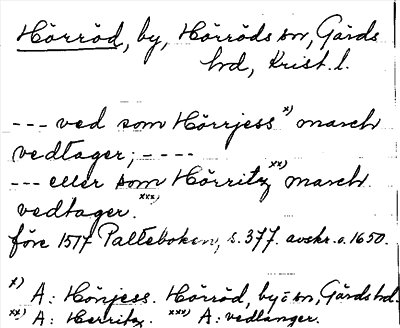 Hörröd, by, Hörröds sn, Gärds
hd, Krist. l.
--- ved som Hörrjess x) march
vedtager; ----
--- eller som Hörritz xx) march
vedtager. xxx)
före 1517 Palteboken, s. 377. avskr. o. 1650.
x) A: Hörjess. Hörröd, by i sn, Gärds hd.
xx) A: Herritz. xxx) A: vedlanger.